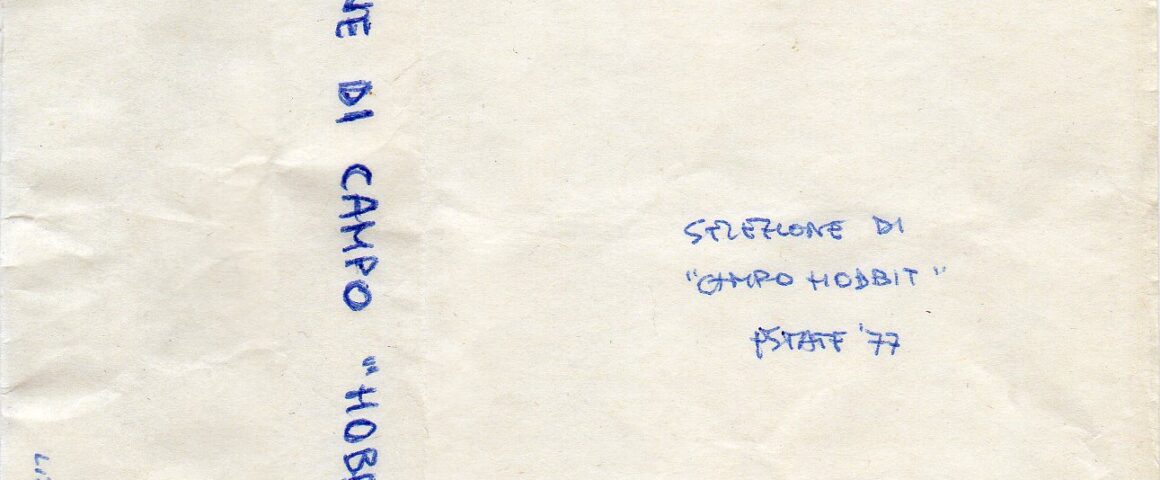 NE DI CAMPO "HOB
SELEZIONE DI
"CAMPO HOBBIT"
ESTATE '77